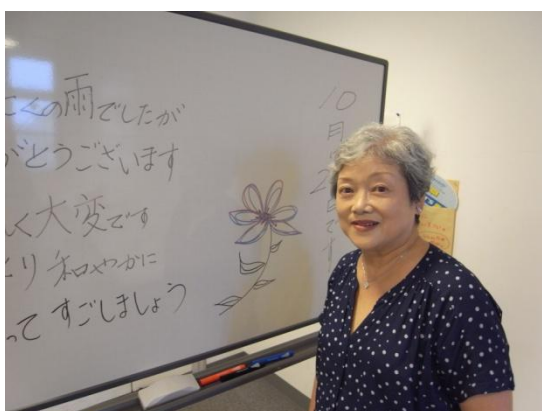 にくの雨でしたが
がとうございます
く大変です
り和やかに
って すごしましょう
10月2日です